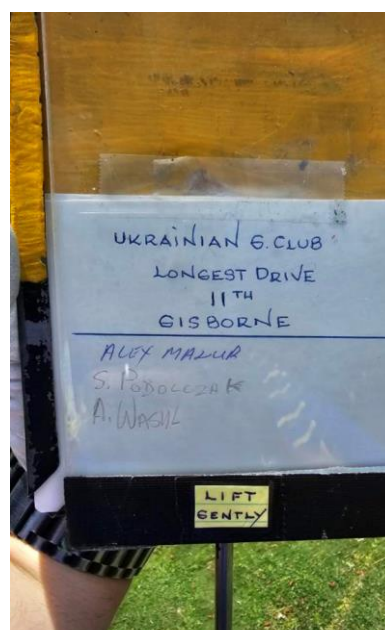 UKRAINIAN G. CLUB
LONGEST DRIVE
11TH
GISBORNE
ALEX MAZUR
S. PODOLCZAK
A. WASYL
LIFT
GENTLY